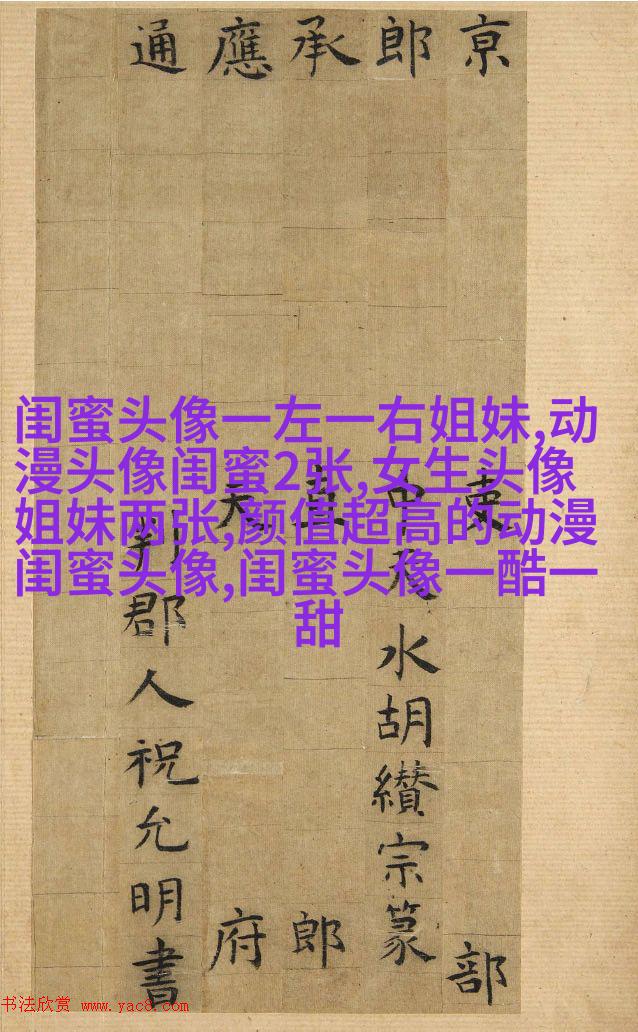 闺蜜头像一左一右姐妹,动
漫头像闺蜜2张,女生头像
姐妹两张,颜值超高的动漫
闺蜜头像,闺蜜头像一酷一
甜
京吏部
郎中水胡纘宗篆
承直郎
應天府
通判郡人祝允明書
书法欣赏 www.yac8.com